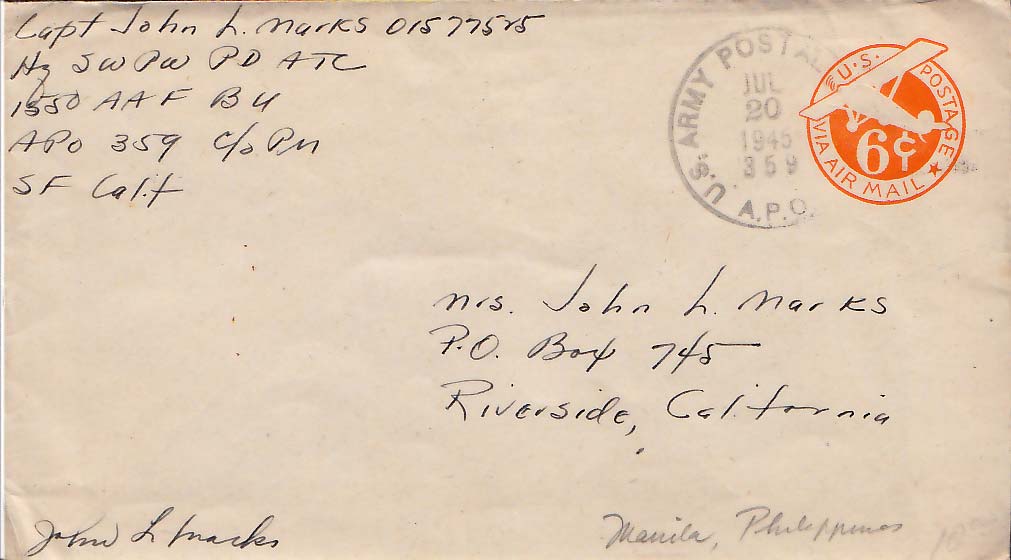 Capt John L. Marks 01577525
Hq SW PW PD ATC
1550 AAF BU
APO 359 c/o PM
SF Calif
U.S. ARMY POSTAL
JUL
20
1945
359
A.P.O.
U.S. POSTAGE
6¢
VIA AIR MAIL
Mrs. John L. Marks
P.O. Box 745
Riverside, California
John L Marks
Manila, Philippines